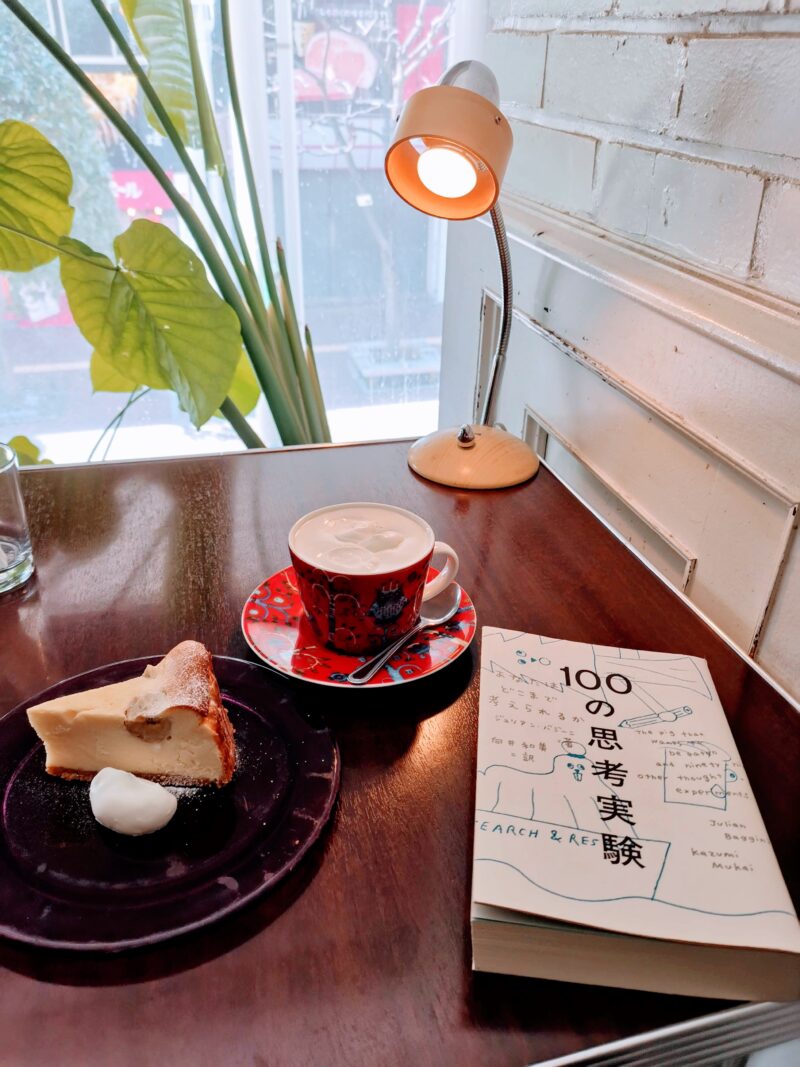 100の思考実験
あなたは
どこまで
考えられるか
ジュリアン・バジーニ 著
向井和美 訳
The pig that
wants to
be eaten
and ninety-nine
other thought
experiments
Julian
Baggini
Kazumi
Mukai
SEARCH & RES